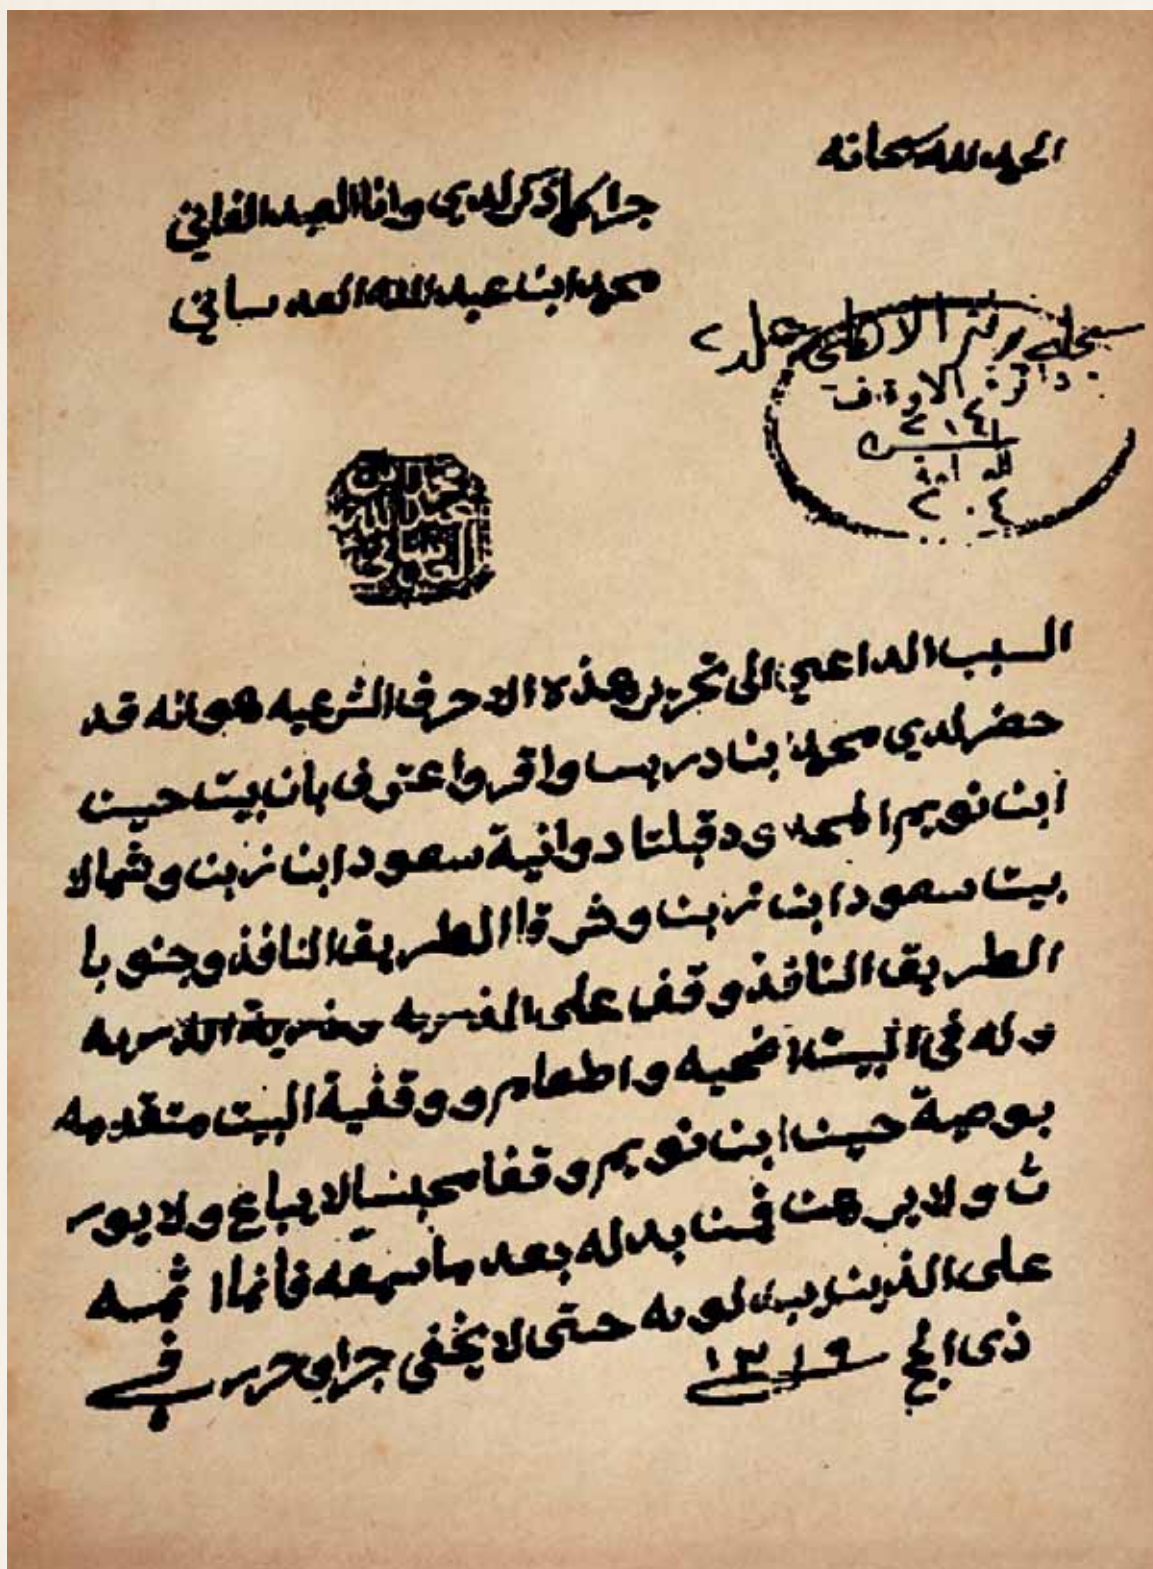 الحمد لله سبحانه
جرا كما ذكر لدي وانا العبد الفاني
محمد ابن عبد الله العدساني
دائرة الاوقاف
٢٠٤
السبب الداعي الى تحرير هذه الاحرف الشرعيه هو انه قد
حضر لدي محمد بن ادريس واقر واعترف بان بيت حسين
ابن نويم المحدود قبلتا دوانية سعود ابن زبن وشمالا
بيت سعود ابن زبن وشرقا الطريق النافذ وجنوبا
الطريق النافذ وقف على الذريه وذرية الذريه
وله في البيت اضحيه واطعام ووقفية البيت متقدمه
بوصية حسين ابن نويم وقفا محبسا لا يباع ولا يور
ث ولا يرهن فمن بدله بعد ما سمعه فانما اثمه
على الذين يبدلونه حتى لا يخفى جرا وحرر في
ذي الحج ١٣١٩